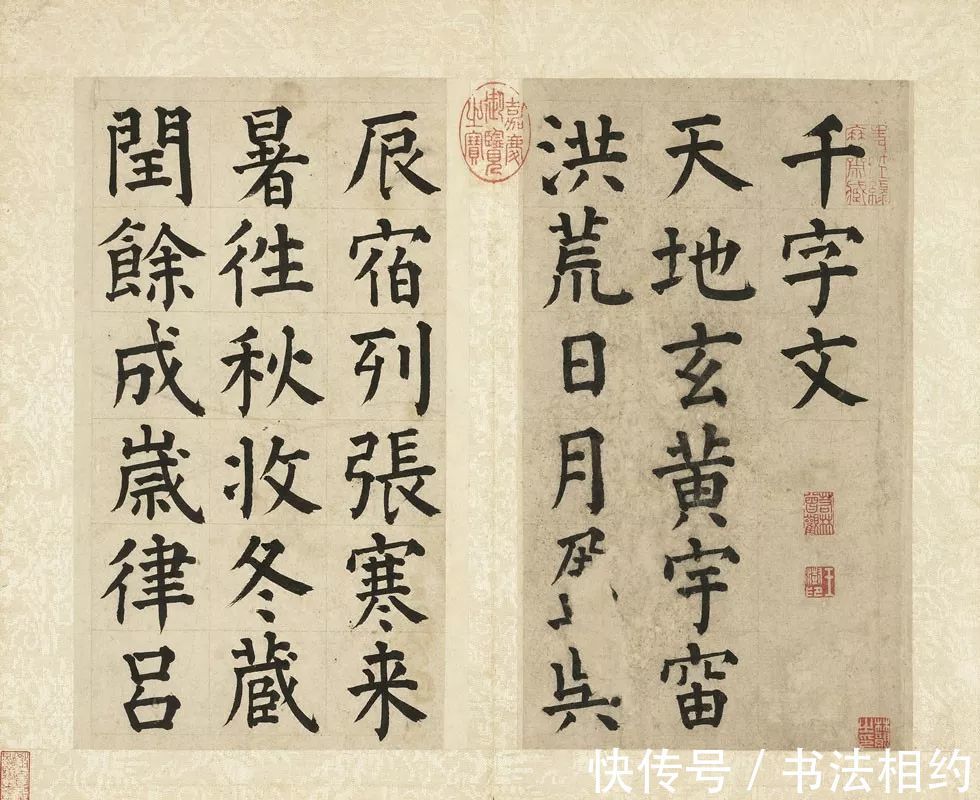 千字文
天地玄黄宇宙
洪荒日月
辰宿列張寒来
暑徃秋收冬蔵
閏餘成歳律呂
嘉慶御覽之寶
快传号 / 书法相约